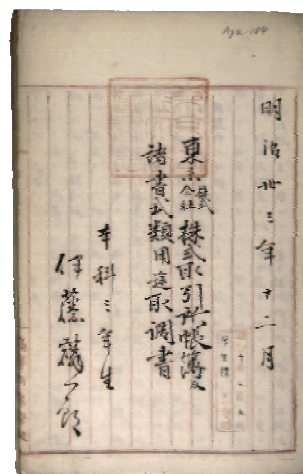 明治卅三年十二月
東京株式会社株式取引所帳簿及
諸書式類用途取調書
本科三年生
伊藤